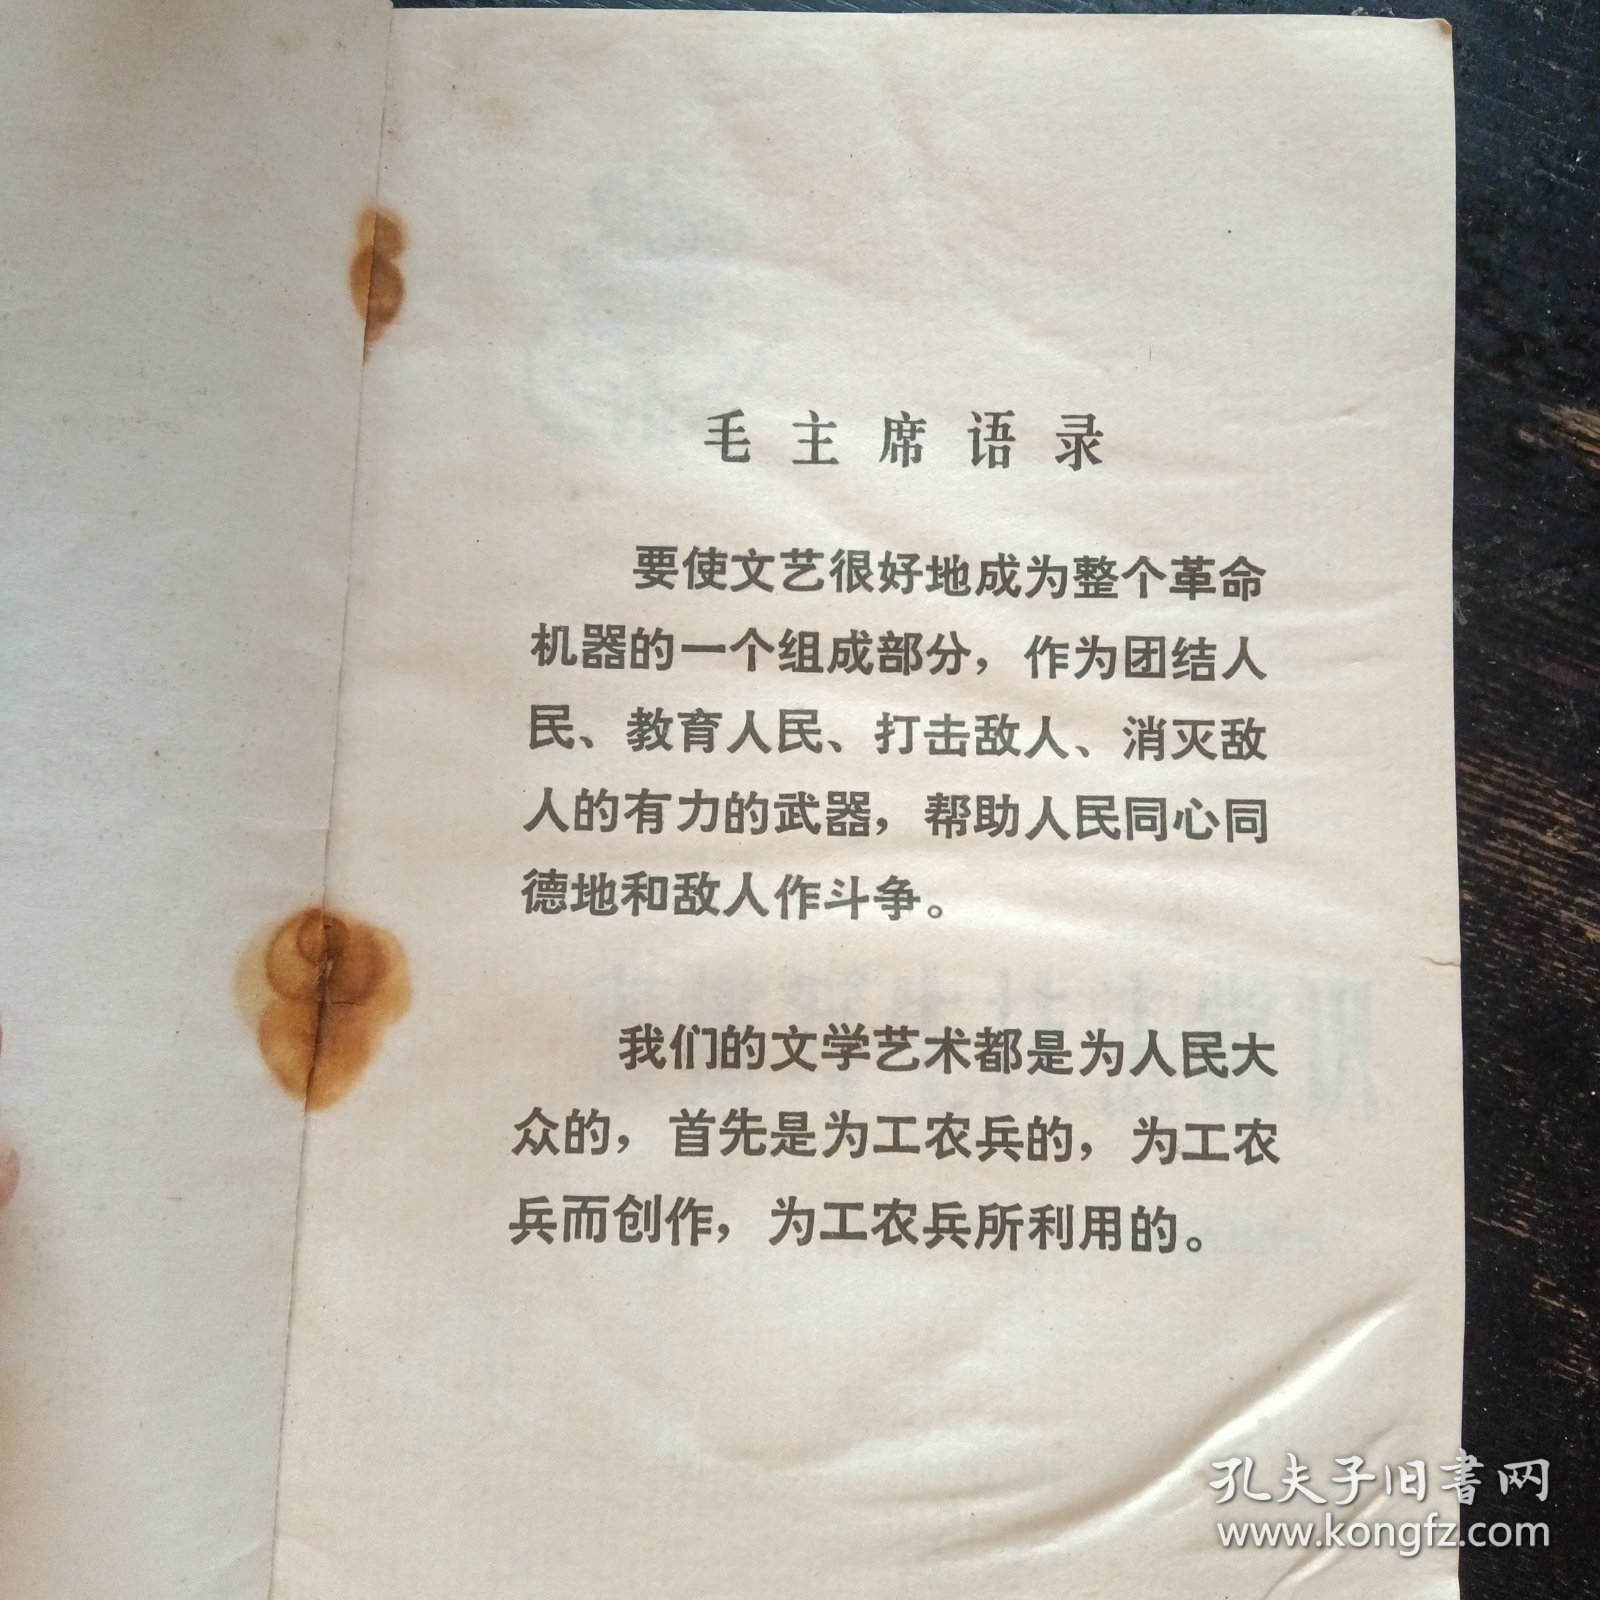 毛主席语录
要使文艺很好地成为整个革命
机器的一个组成部分，作为团结人
民、教育人民、打击敌人、消灭敌
人的有力的武器，帮助人民同心同
德地和敌人作斗争。
我们的文学艺术都是为人民大
众的，首先是为工农兵的，为工农
兵而创作，为工农兵所利用的。
孔夫子旧书网
www.kongfz.com